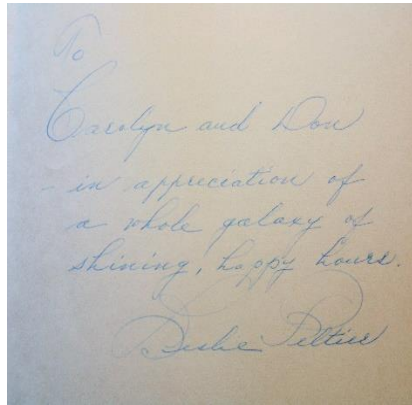 To
Carolyn and Don
- in appreciation of
a whole galaxy of
shining, happy hours.
Leslie Peltier